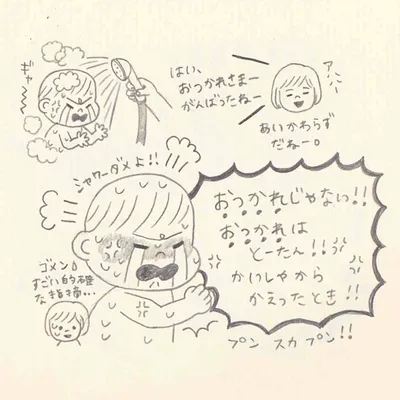 ギャ〜〜
はい、
おつかれさまー
がんばったねー
アハハー
あいかわらず
だねー。
シャワーダメよ!!
おつかれじゃない!!
おつかれは
とーたん!!
かいしゃから
かえったとき!!
プン スカプン!!
ゴメン
すごい的確
な指摘…